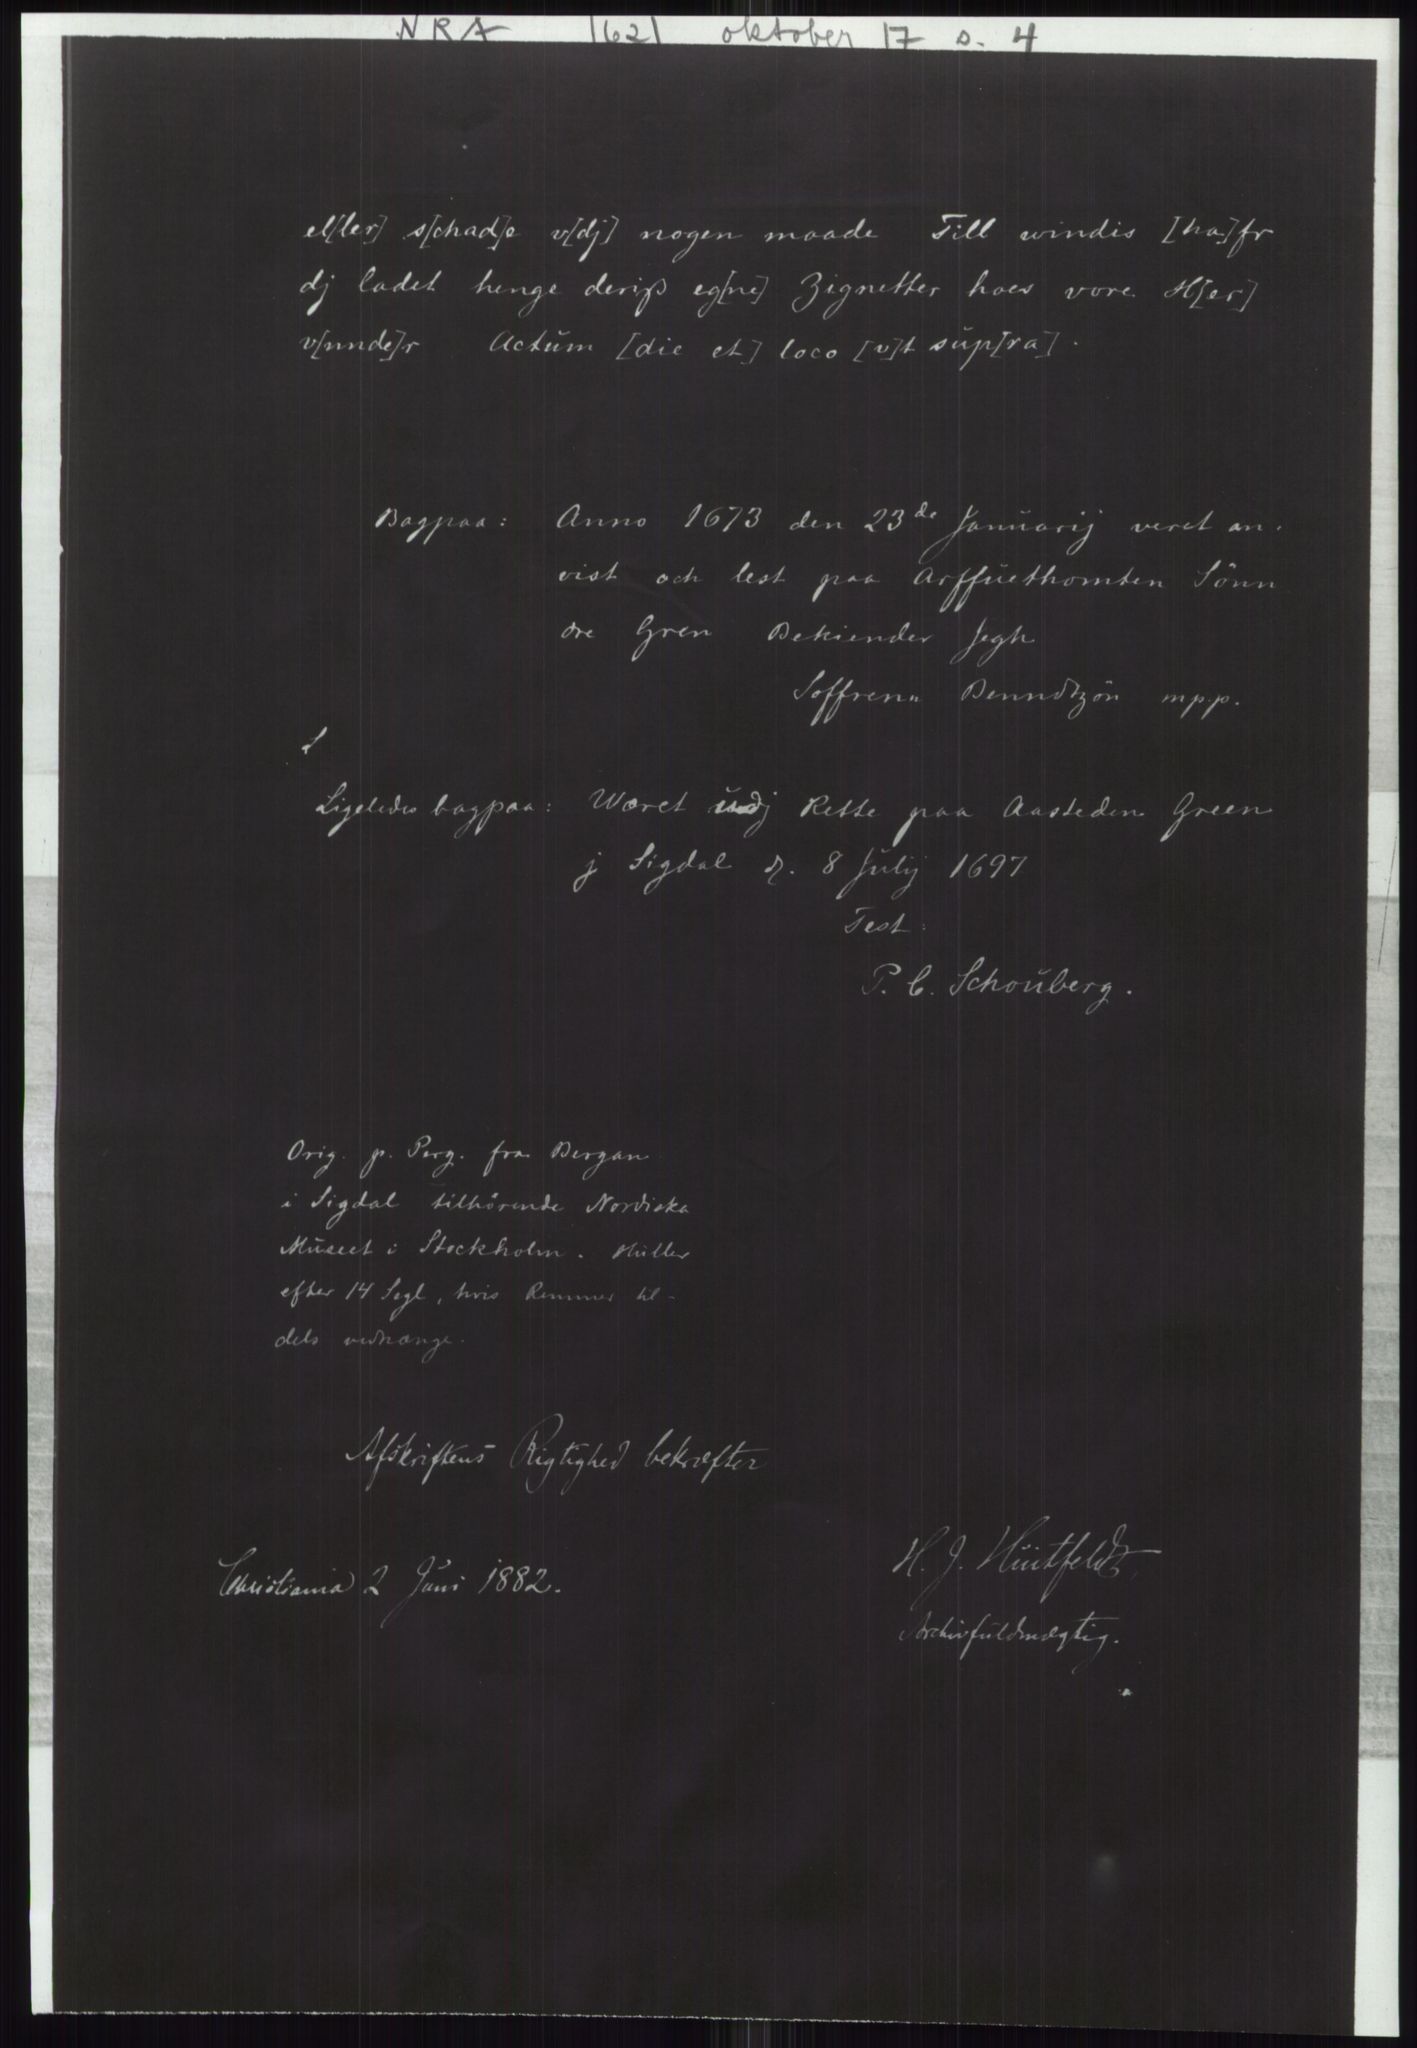 NRA 1621 oktober 17 s. 4
el[ler] s[chad]e v[dj] nogen maade Till windis [ha]fr
dj ladet henge deriß eg[ne] Zignetter hoes vore H[er]
v[nnde]r Actům [die et] loco [v]t sůp[ra].
Bagpaa: Anno 1673 den 23de Janůarij veret an-
vist och lest paa Arffůethomten Sönn
dre Gren Bekiender Jegh
Soffrenn Benndtzön mpp.
Ligeledes bagpaa: Wæret ůdj Rette paa Aasteden Green
j Sigdal d. 8 Jůlij 1697
Test:
P. C. Schoůberg.
Orig. p. Perg. fra Bergan
i Sigdal tilhörende Nordiska
Můseet i Stockholm. Hůller
efter 14 Segl, hvis Remmer til-
dels vedhænge.
Afskriftens Rigtighed bekræfter
Christiania 2 Jůni 1882.
H. J. Hůitfeldt,
Archivfůldmægtig.